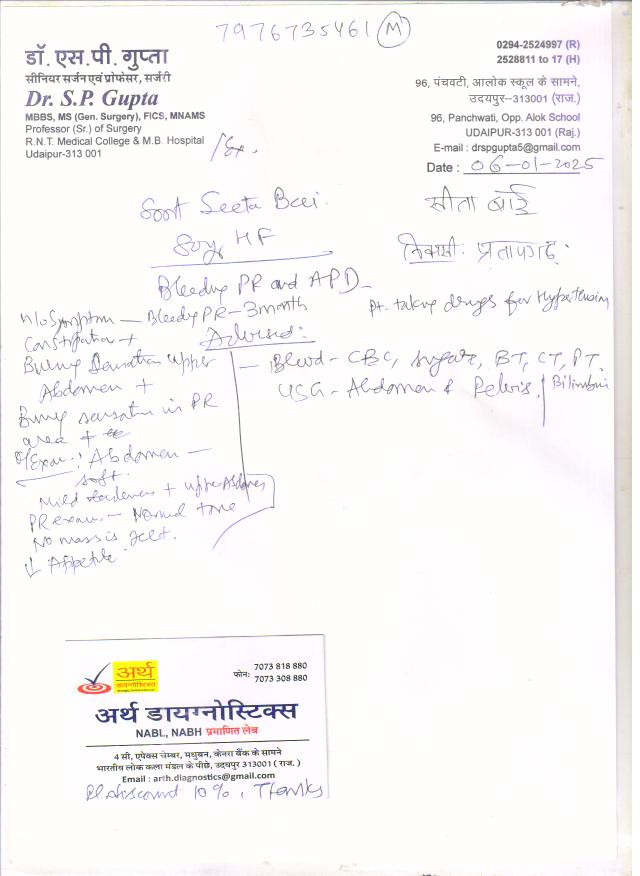 7976735461 (M)
डॉ. एस.पी. गुप्ता
सीनियर सर्जन एवं प्रोफेसर, सर्जरी
Dr. S.P. Gupta
MBBS, MS (Gen. Surgery), FICS, MNAMS
Professor (Sr.) of Surgery
R.N.T. Medical College & M.B. Hospital
Udaipur-313 001
0294-2524997 (R)
2528811 to 17 (H)
96, पंचवटी, आलोक स्कूल के सामने,
उदयपुर-313001 (राज.)
96, Panchwati, Opp. Alok School
UDAIPUR-313 001 (Raj.)
E-mail : drspgupta5@gmail.com
Date : 06-01-2025
Smt Seeta Bai.
सीता बाई
80y, HF
निवासी: प्रतापगढ़.
Bleeding PR and APD
Pt. taking drugs for Hypertension
Advised:
- Blood - CBC, Sugar, BT, CT, PT,
Bilirubin
USG - Abdomen & Pelvis.
H/o Symptom - Bleeding PR - 3 month
Constipation +
Burning Sensation upper
Abdomen +
Burning sensation in PR
area +
O/Exam: Abdomen -
soft.
Mild tenderness + upper Abdomen
PR exam. - Normal tone
No mass is felt.
↓ Appetite
अर्थ
डायग्नोस्टिक्स
फोन: 7073 818 880
7073 308 880
अर्थ डायग्नोस्टिक्स
NABL, NABH प्रमाणित लेब
4 सी, एपेक्स चेम्बर, मधुबन, केनरा बैंक के सामने
भारतीय लोक कला मंडल के पीछे, उदयपुर 313001 ( राज. )
Email : arth.diagnostics@gmail.com
Pl discount 10%. Thanks